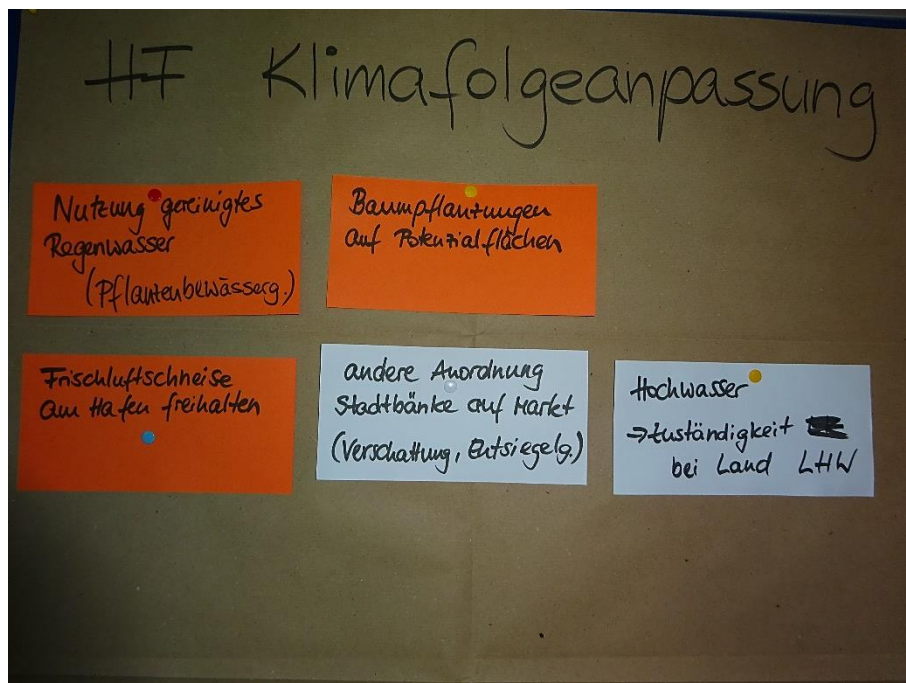 HF Klimafolgeanpassung
Nutzung gereinigtes
Regenwasser
(Pflanzenbewässerg.)
Baumpflanzungen
auf Potenzialflächen
Frischluftschneise
am Hafen freihalten
andere Anordnung
Stadtbänke auf Markt
(Verschattung, Entsiegelg.)
Hochwasser
→ Zuständigkeit
bei Land LHW